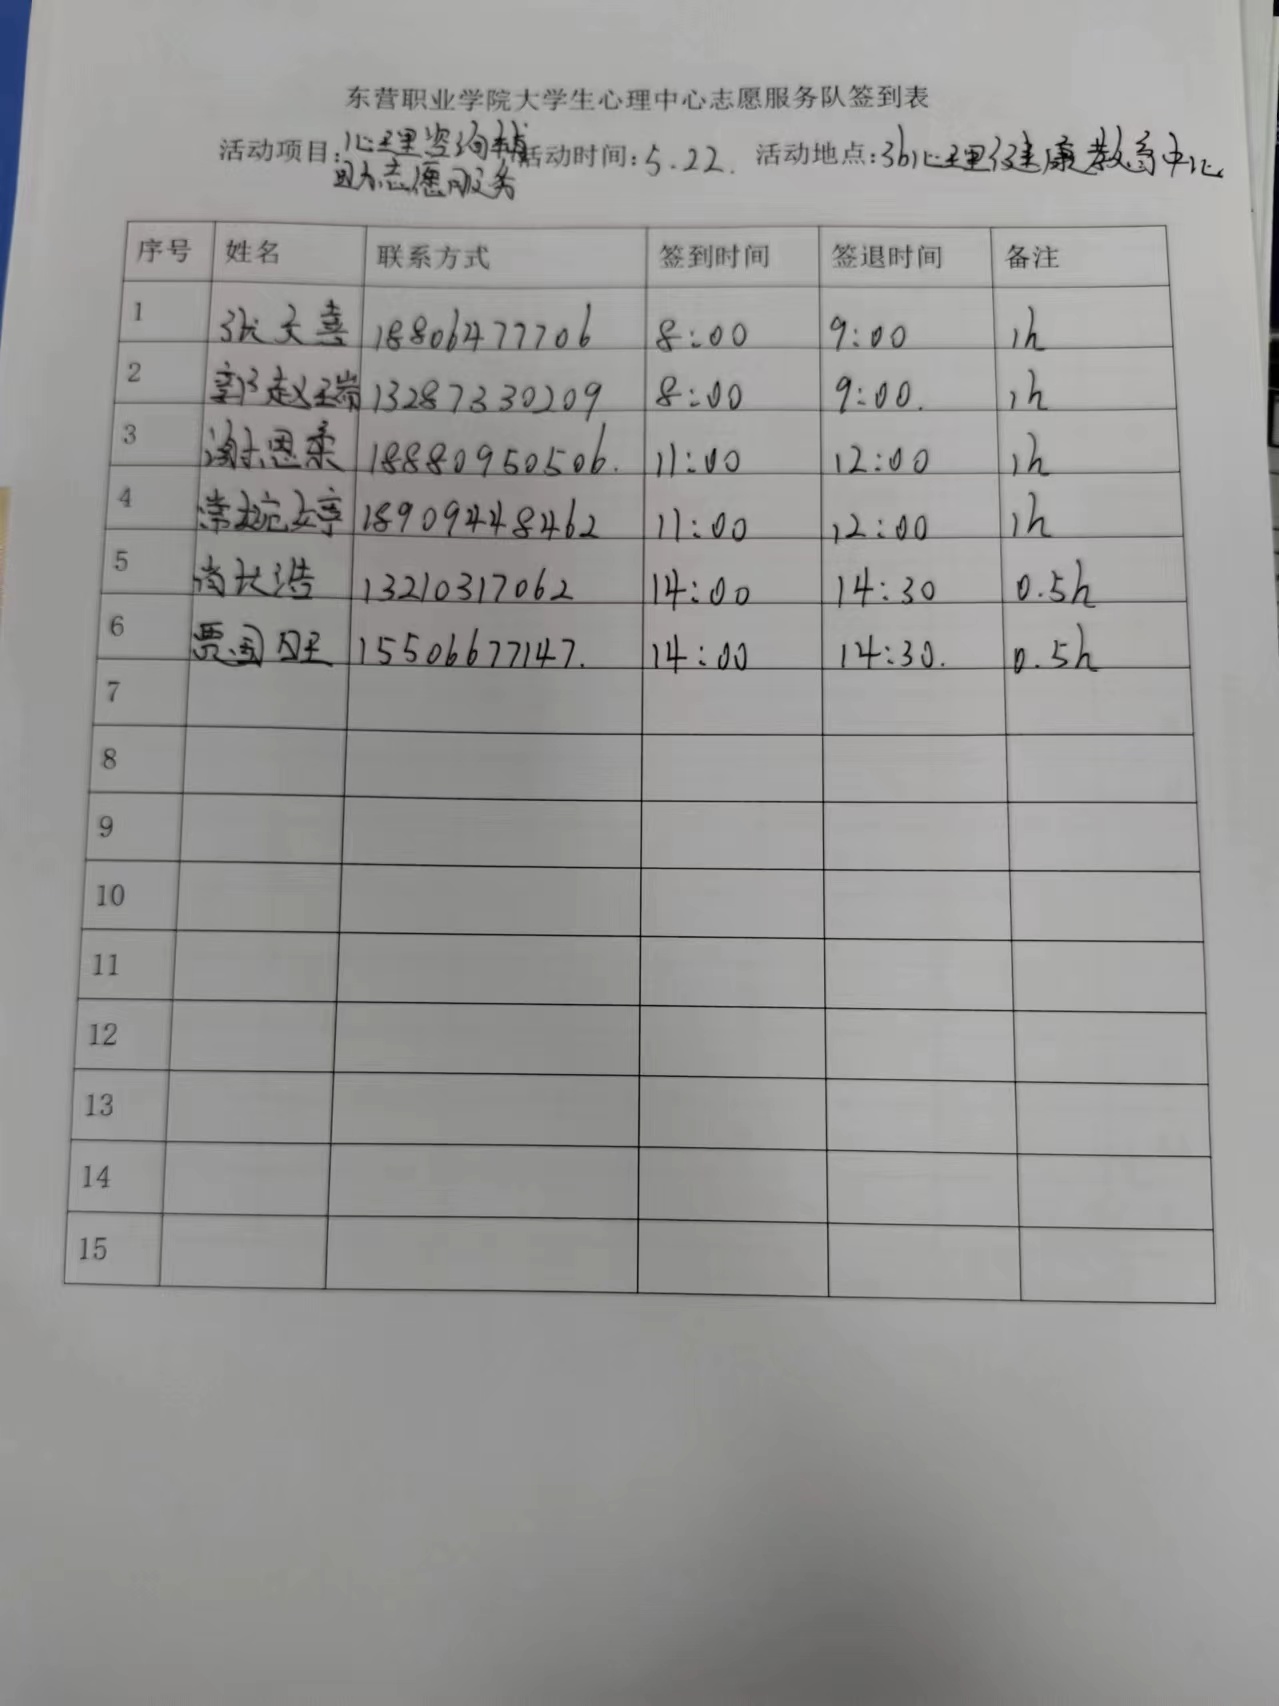 东营职业学院大学生心理中心志愿服务队签到表
活动项目：心理咨询辅助志愿服务 活动时间：5.22. 活动地点：36心理健康教育中心
序号 姓名 联系方式 签到时间 签退时间 备注
1 张文喜 18806477706 8:00 9:00 1h
2 郭赵瑞 13287330209 8:00 9:00. 1h
3 谢恩柔 18880950506. 11:00 12:00 1h
4 常婷 18909448462 11:00 12:00 1h
5 尚长浩 13210317062 14:00 14:30 0.5h
6 贾国 15506677147. 14:00 14:30. 0.5h
7
8
9
10
11
12
13
14
15